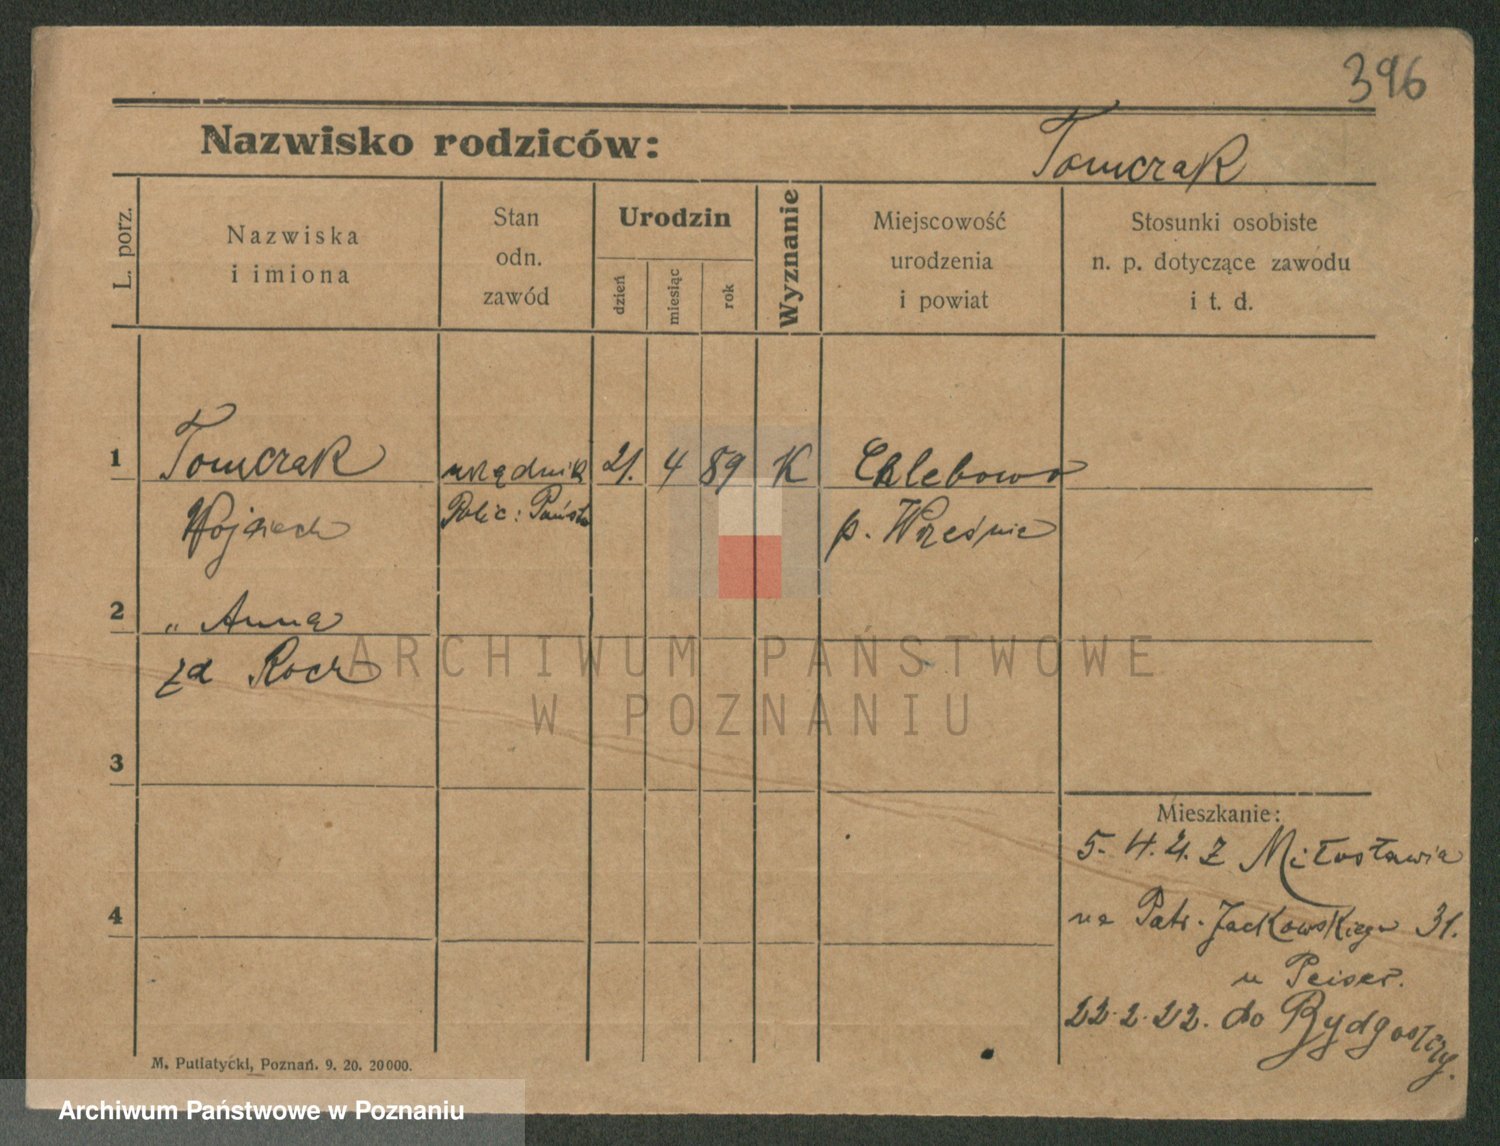 396
Nazwisko rodziców: Tomczak
L. porz.
Nazwiska
i imiona
Stan
odn.
zawód
Urodzin
dzień
miesiąc
rok
Wyznanie
Miejscowość
urodzenia
i powiat
Stosunki osobiste
n. p. dotyczące zawodu
i t. d.
1 Tomczak urzędnik 21. 4 89 K Chlebowo
Wojciech Polic: Państw p. Września
2 „ Anna
zd Roch
ARCHIWUM PAŃSTWOWE
W POZNANIU
3
Mieszkanie:
5. 4. 21. z Miłosławia
4
na Patr. Jackowskiego 31.
u Peisert.
22.2.22. do Bydgoszczy.
M. Putiatycki, Poznań. 9. 20. 20000.
Archiwum Państwowe w Poznaniu